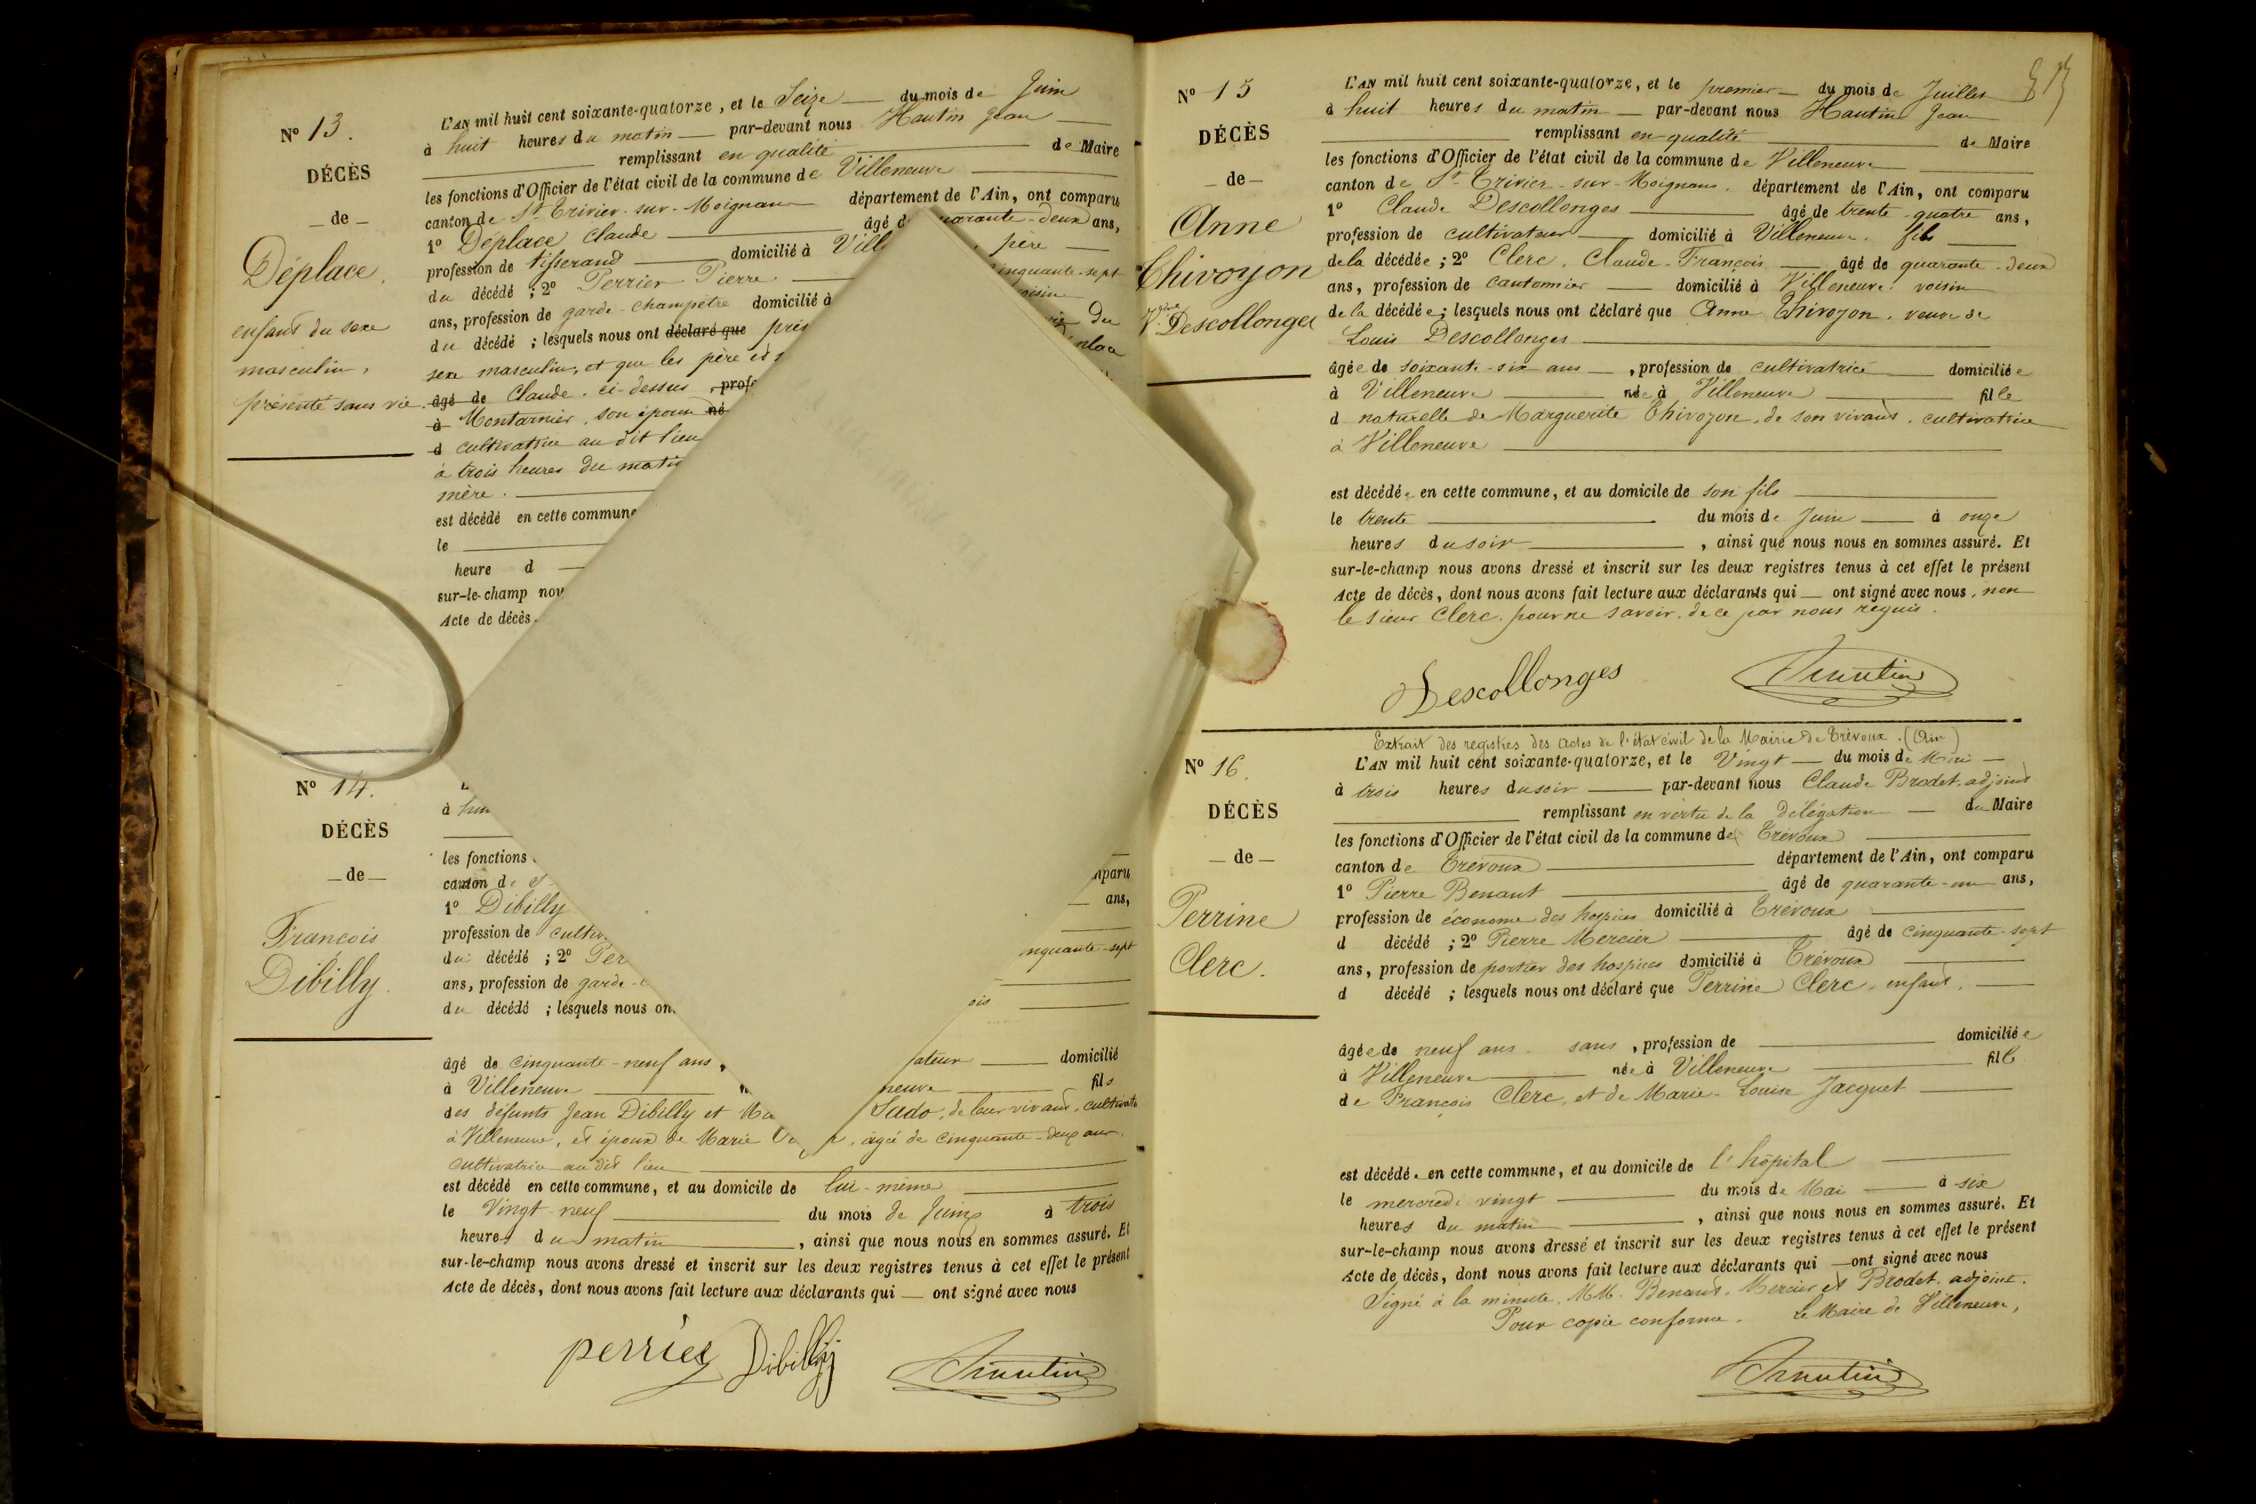 N° 13.
DÉCÈS
— de —
Déplace.
enfant du sexe
masculin,
présenté sans vie.
L'AN mil huit cent soixante-quatorze, et le Seize — du mois de Juin
à huit heures du matin — par-devant nous Hautin Jean —
remplissant en qualité — de Maire
les fonctions d'Officier de l'état civil de la commune de Villeneuve
canton de St Trivier-sur-Moignans département de l'Ain, ont comparu
1° Déplace Claude — âgé de quarante-deux ans,
profession de tisserand — domicilié à Vill père —
du décédé ; 2° Perrier Pierre — cinquante-sept
ans, profession de garde-champêtre domicilié à voisin
du décédé ; lesquels nous ont déclaré que du
sexe masculin, et que les père et
âgé de Claude, ci-dessus
à Montarnier, son épouse né
d cultivatrice au dit lieu
à trois heures du matin
mère. —
est décédé en cette commune
le —
heure d —
sur-le-champ nou
Acte de décès.
N° 14.
DÉCÈS
— de —
François
Dibilly.
les fonctions
canton de mparu
1° Dibilly — ans,
profession de
du décédé ; 2° nquante-sept
ans, profession de garde-
du décédé ; lesquels nous on
âgé de cinquante-neuf ans, ateur — domicilié
à Villeneuve — neuve — fils
des défunts Jean Dibilly et Sado, de leur vivant, cultivate
à Villeneuve, et époux de Marie âgée de cinquante-deux ans,
cultivatrice au dit lieu —
est décédé en cette commune, et au domicile de lui-même —
le Vingt-neuf — du mois de Juin à trois
heures du matin —, ainsi que nous nous en sommes assuré. Et
sur-le-champ nous avons dressé et inscrit sur les deux registres tenus à cet effet le présent
Acte de décès, dont nous avons fait lecture aux déclarants qui — ont signé avec nous
perrier Dibilly Hautin
N° 15
DÉCÈS
— de —
Anne
Chivoyon
Vve Descollonges
L'AN mil huit cent soixante-quatorze, et le premier — du mois de Juillet
à huit heures du matin — par-devant nous Hautin Jean
remplissant en qualité — de Maire
les fonctions d'Officier de l'état civil de la commune de Villeneuve —
canton de St Trivier-sur-Moignans. département de l'Ain, ont comparu
1° Claude Descollonges — âgé de trente-quatre ans,
profession de cultivateur — domicilié à Villeneuve. fils —
de la décédée ; 2° Clerc, Claude-François — âgé de quarante-deux
ans, profession de cantonnier — domicilié à Villeneuve. voisin
de la décédée ; lesquels nous ont déclaré que Anne Chivoyon, veuve de
Louis Descollonges —
âgée de soixante-six ans —, profession de cultivatrice — domiciliée
à Villeneuve — née à Villeneuve — fille
d naturelle de Marguerite Chivoyon, de son vivant, cultivatrice
à Villeneuve —
est décédée en cette commune, et au domicile de son fils —
le trente — du mois de Juin — à onze
heures du soir —, ainsi que nous nous en sommes assuré. Et
sur-le-champ nous avons dressé et inscrit sur les deux registres tenus à cet effet le présent
Acte de décès, dont nous avons fait lecture aux déclarants qui — ont signé avec nous, non
le sieur Clerc, pour ne savoir, de ce par nous requis.
Descollonges Hautin
N° 16.
DÉCÈS
— de —
Perrine
Clerc.
Extrait des registres des actes de l'état civil de la Mairie de Trévoux. (Ain)
L'AN mil huit cent soixante-quatorze, et le Vingt — du mois de Mai —
à trois heures du soir — par-devant nous Claude Brodet, adjoint
remplissant en vertu de la délégation — du Maire
les fonctions d'Officier de l'état civil de la commune de Trévoux —
canton de Trévoux — département de l'Ain, ont comparu
1° Pierre Benaut — âgé de quarante-un ans,
profession de économe des hospices domicilié à Trévoux —
d décédé ; 2° Pierre Mercier — âgé de cinquante-sept
ans, profession de portier des hospices domicilié à Trévoux —
d décédé ; lesquels nous ont déclaré que Perrine Clerc, enfant, —
âgée de neuf ans. sans, profession de — domiciliée
à Villeneuve — née à Villeneuve — fille
de François Clerc, et de Marie-Louise Jacquet —
est décédée en cette commune, et au domicile de l'hôpital —
le mercredi vingt — du mois de Mai — à six
heures du matin —, ainsi que nous nous en sommes assuré. Et
sur-le-champ nous avons dressé et inscrit sur les deux registres tenus à cet effet le présent
Acte de décès, dont nous avons fait lecture aux déclarants qui — ont signé avec nous
Signé à la minute, MM. Benaut, Mercier et Brodet, adjoint.
Pour copie conforme. Le Maire de Villeneuve,
Hautin